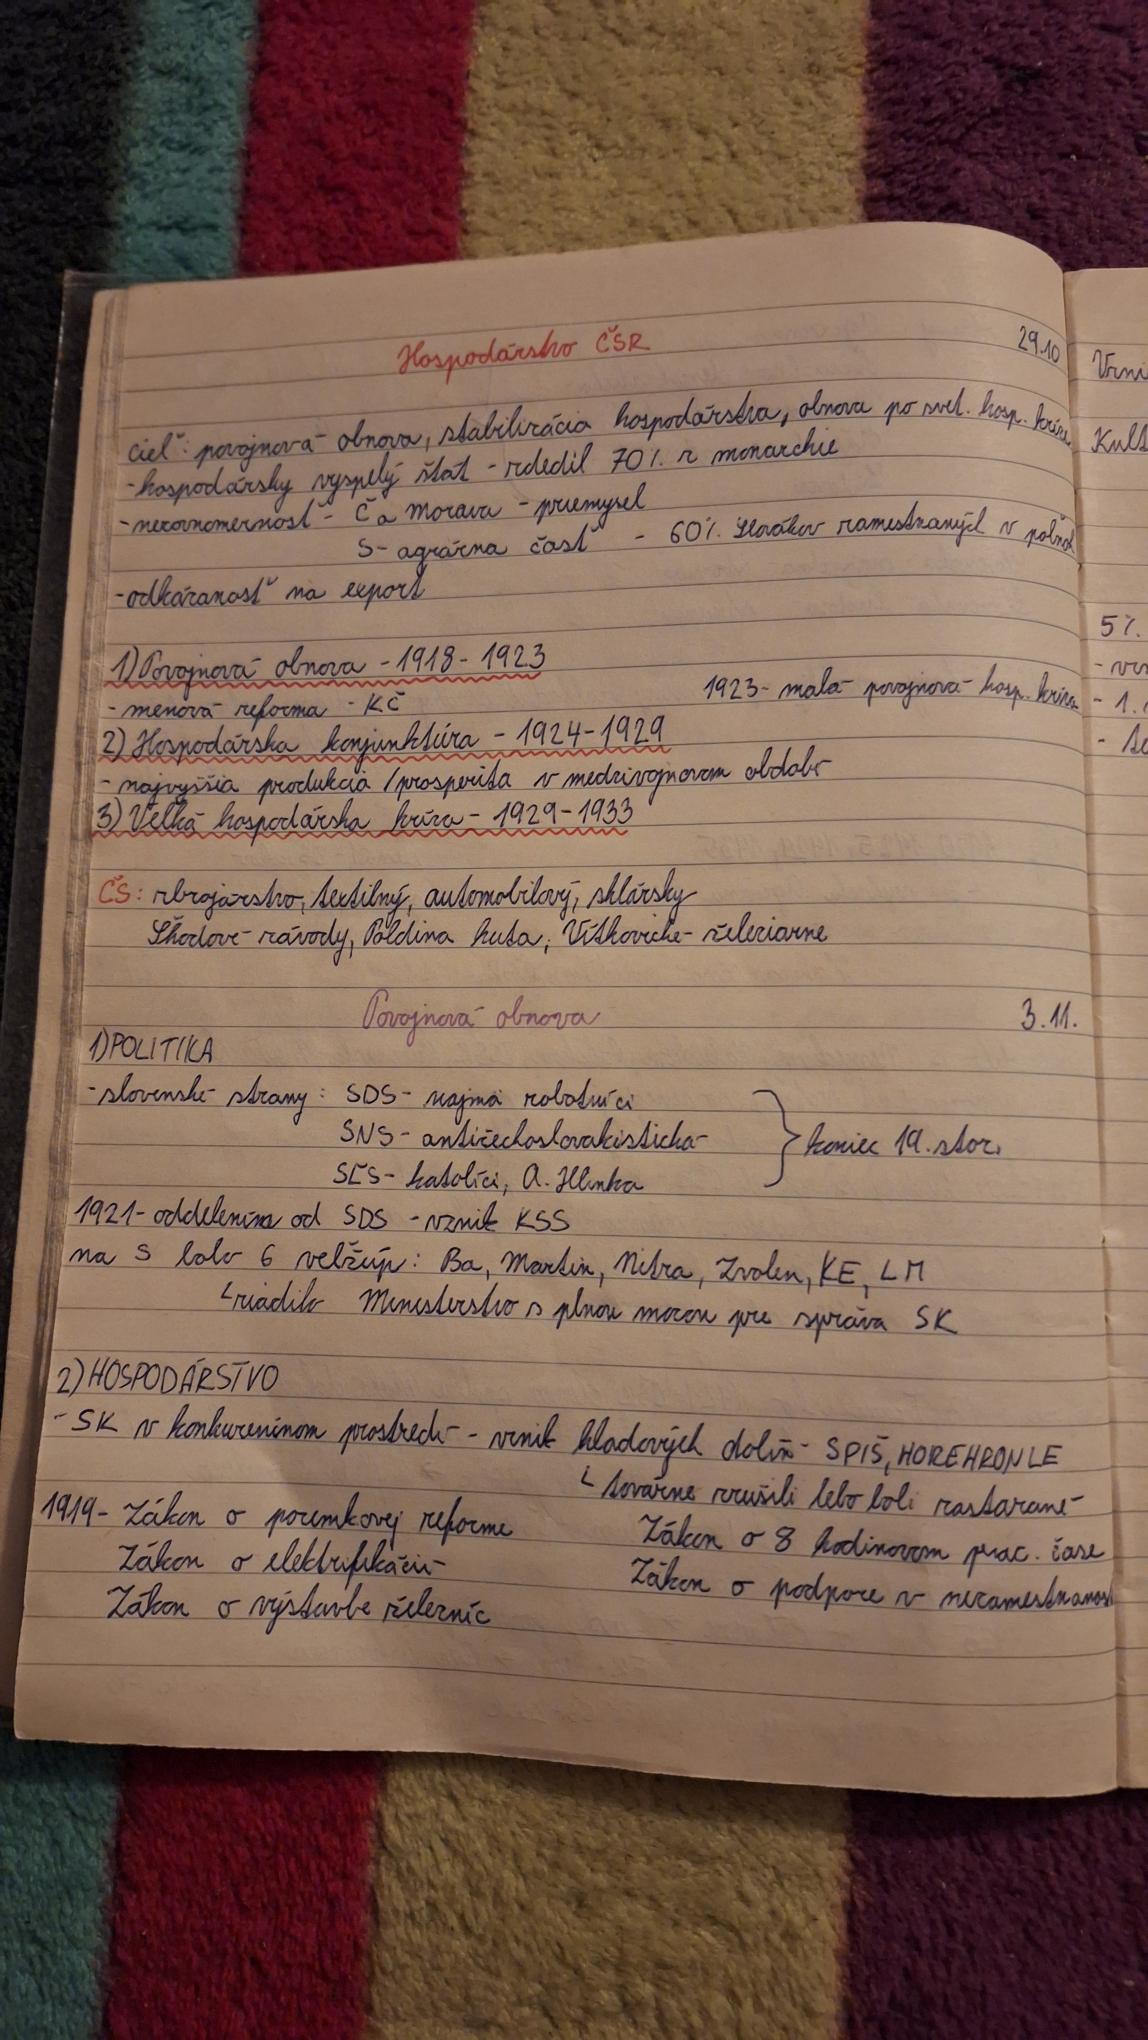 Hospodárstvo ČSR
29.10
cieľ: povojnová obnova, stabilizácia hospodárstva, obnova po svet. hosp. kríze
-hospodársky vyspelý štát - zdedil 70% z monarchie
-nerovnomernosť - Č a Morava - priemysel
S- agrárna časť - 60% Slovákov zamestnaných v poľnoh
-odkázanosť na export
1) Povojnová obnova - 1918 - 1923
- menová reforma - KČ
1923- malá povojnová hosp. kríza
2) Hospodárska konjunktúra - 1924-1929
- najvyššia produkcia /prosperita v medzivojnovom období
3) Veľká hospodárska kríza - 1929-1933
ČS: zbrojárstvo, textilný, automobilový, sklársky
Škodové závody, Poldina huta, Vítkovické železiarne
Povojnová obnova
3.11.
1) POLITIKA
-slovenské strany: SDS- najmä robotníci
SNS- antičechoslovakistická
SĽS- katolíci, A. Hlinka
} koniec 19. stor.
1921- oddelením od SDS - vznik KSS
na S bolo 6 veľžúp: Ba, Martin, Nitra, Zvolen, KE, LM
riadilo Ministerstvo s plnou mocou pre správa SK
2) HOSPODÁRSTVO
- SK v konkurenčnom prostredí - vznik hladových dolín - SPIŠ, HOREHRONIE
továrne zrušili lebo boli zastarané
1919- Zákon o pozemkovej reforme
Zákon o 8 hodinovom prac. čase
Zákon o elektrifikácii
Zákon o podpore v nezamestnanosti
Zákon o výstavbe železníc
Kult
5%.
- 1.